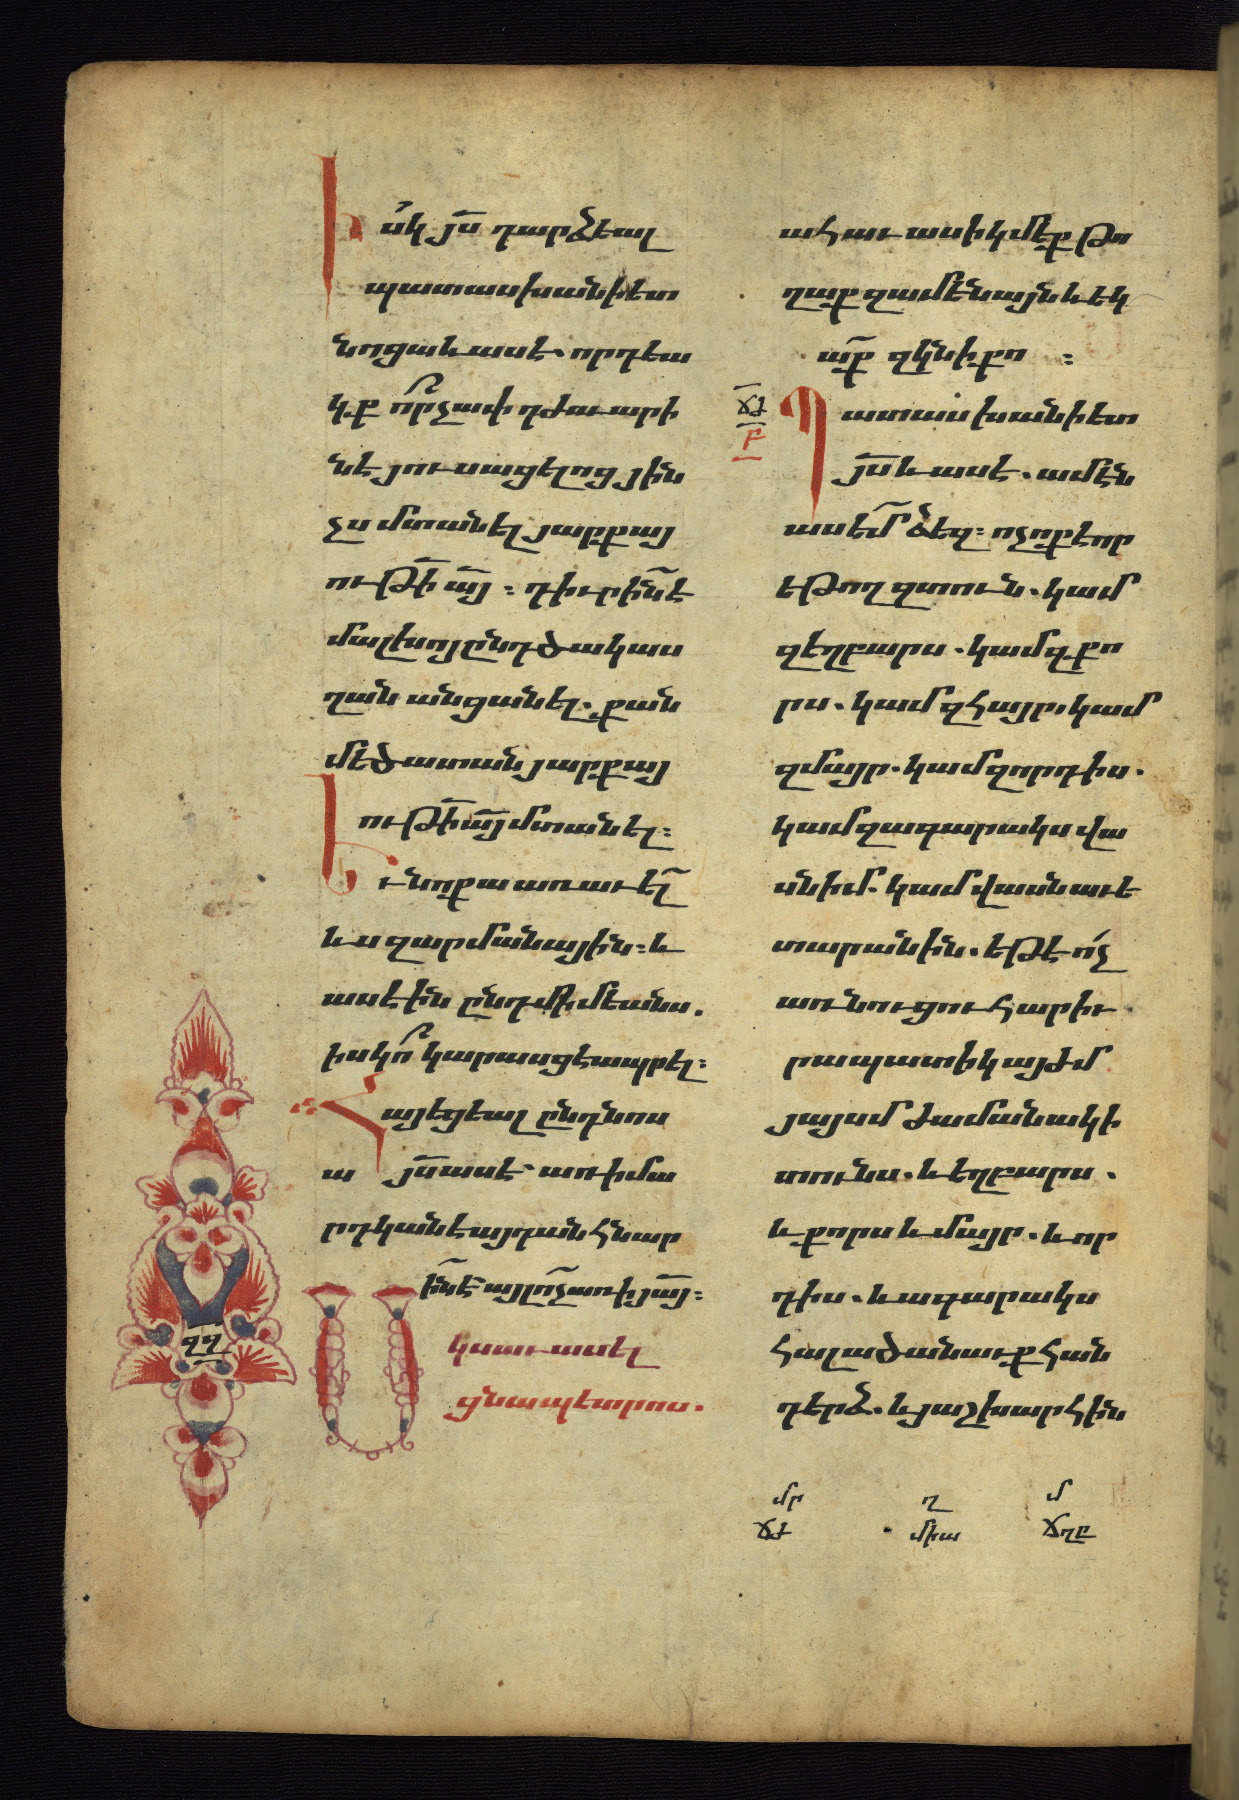 Իսկ յս դարձեալ
պատասխանի ետ
նոցա և ասէ. որդեա
կք ո՞րչափ դժուարի
նէ յուսացելոց յին
չս մտանել յարքայ
ութի այ : դիւրին է
մալխոյ ընդ ծակ աս
ղան անցանել. քան
մեծատան յարքայ
ութի այ մտանել :
Եւ նոքա առաւել
ևս զարմանային : և
ասէին ընդ միմեանս.
իսկ ո՞ կարասցէ ապրել :
Հայեցեալ ընդ նոսա
յս ասէ. առ ի մա
րդկանէ այդ անհնար
ին է այլ ոչ առ ի յայ :
Սկսաւ ասել
ցնա պետրոս.
ահաւասիկ մեք թո
ղաք զամենայն և եկ
աք զկնի քո :
Պատասխանի ետ
յս և ասէ. ամէն
ասեմ ձեզ : ոչ ոք է որ
եթող զտուն. կամ
զեղբարս. կամ զքո
րս. կամ զհայր. կամ
զմայր. կամ զորդիս.
կամ զագարակս վա
սն իմ. կամ վասն աւե
տարանին. եթէ ո՛չ
առնուցու հարիւ
րապատիկ այժմ
յայսմ ժամանակի
տունս. և եղբարս.
և քորս և մայր. և որ
դիս. և ագարակս
հալածանաւք հան
դերձ. և յաշխարհին
ՃԺ
Բ
ՂՂ
մր
ՃԺ
ղ
միա
մ
ՃՂԲ